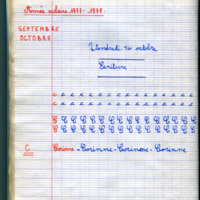 Année scolaire 1977-1978
SEPTEMBRE
OCTOBRE
Vendredi 14 octobre
Ecriture
c c c c c c c c c c c c c c c
c c c c c c c c c c c c c c c
C C C C C C C C C C C C C C C
C C C C C C C C C C C C C C C
C Corinne - Corinne - Corinne - Corinne